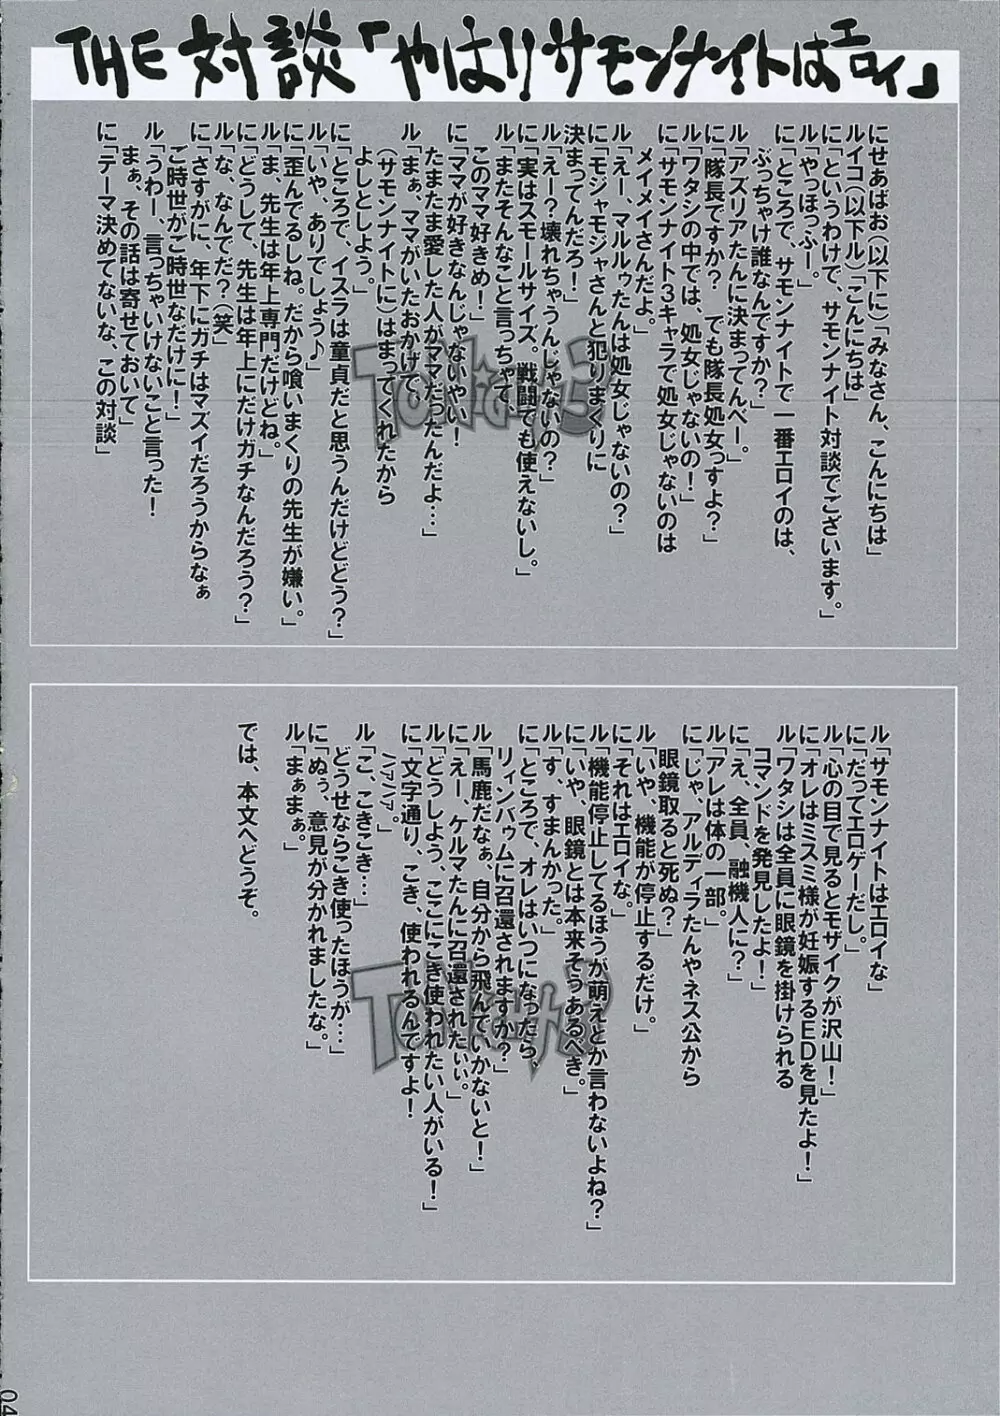 THE 対談「やはりサモンナイトはエロイ」
にせあばお（以下に）「みなさん、こんにちは」
ルイコ（以下ル）「こんにちは」
に「というわけで、サモンナイト対談でございます。」
ル「やっほっふー。」
に「ところで、サモンナイトで一番エロイのは、
ぶっちゃけ誰なんですか？」
ル「アズリアたんに決まってんべー。」
に「隊長ですか？　でも隊長処女っすよ？」
ル「ワタシの中では、処女じゃないの！」
に「サモンナイト3キャラで処女じゃないのは
メイメイさんだよ。」
ル「またそんなこと言っちゃて、
このママ好きめ！」
に「ママが好きなんじゃないやい！
たまたま愛した人がママだったんだよ…」
ル「まぁ、ママがいたおかげで、
（サモンナイトに）はまってくれたから
よしとしよう。」
に「ところで、イスラは童貞だと思うんだけどどう？」
ル「いや、ありでしょう♪」
に「歪んでるしね。だから喰いまくりの先生が嫌い。」
ル「ま、先生は年上専門だけどね。」
に「どうして、先生は年上にだけガチなんだろう？」
ル「な、なんでだ？(笑)」
に「さすがに、年下にガチはマズイだろうからなぁ
ご時世がご時世なだけに！」
ル「うわー、言っちゃいけないこと言った！
まぁ、その話は寄せておいて」
に「テーマ決めてないな、この対談」
ル「サモンナイトはエロイな」
に「だってエロゲーだし。」
ル「心の目で見るとモザイクが沢山！」
に「オレはミスミ様が妊娠するEDを見たよ！」
ル「ワタシは全員に眼鏡を掛けられる
コマンドを発見したよ！」
に「え、全員、融機人に？」
ル「アレは体の一部。」
に「じゃ、アルディラたんやネス公から
眼鏡取ると死ぬ？」
ル「いや、機能が停止するだけ。」
に「それはエロイな。」
ル「機能停止してるほうが萌えとか言わないよね？」
に「いや、眼鏡とは本来そうあるべき。」
ル「す、すまんかった。」
に「ところで、オレはいつになったら、
リィンバゥムに召還されますか？」
ル「馬鹿だなぁ、自分から飛んでいかないと！」
に「えー、ケルマたんに召還されたいぃ。」
ル「どうしよう、ここにこき使われたい人がいる！」
に「文字通り、こき、使われるんですよ！
ハァハァ。」
ル「こ、こきこき…。
どうせならこき使ったほうが…」
に「ぬぅ、意見が分かれましたな。」
ル「まぁまぁ。」
では、本文へどうぞ。
04